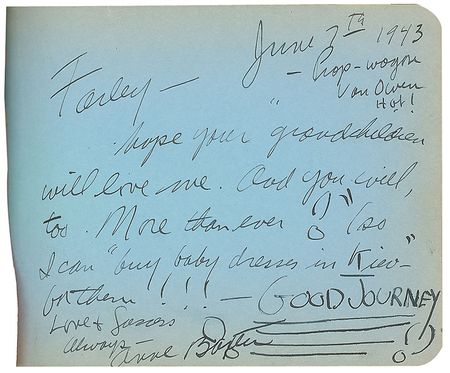 June 7th 1943
Farley —
— Prop-wagon
Van Owen
Hot!
"hope your grandchildren
will love me. And you will,
too. More than ever!?" (so
I can "buy baby dresses in Kiev"
for them!!! — GOOD JOURNEY
Love +
Always — Anne Baxter (!)